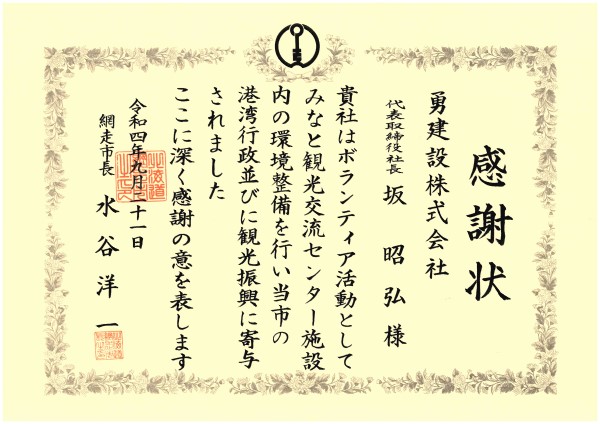 感謝状
勇建設株式会社
代表取締役社長 坂 昭弘 様
貴社はボランティア活動として
みなと観光交流センター施設
内の環境整備を行い当市の
港湾行政並びに観光振興に寄与
されました
ここに深く感謝の意を表します
令和四年九月二十一日
網走市長 水谷洋一